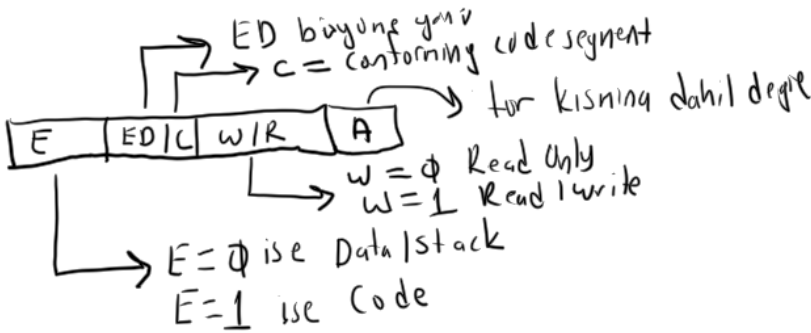 ED büyüme yönü
C = Conforming code segment
tür kısmına dahil değil
E ED/C W/R A
W = 0 Read Only
W = 1 Read/write
E = 0 ise Data/Stack
E = 1 ise Code